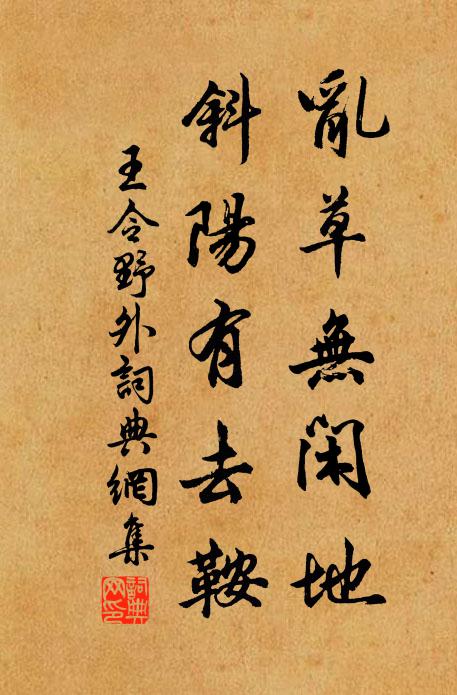 亂草無閑地
斜陽有去鞍
王令野外詞典網集
詞典网印